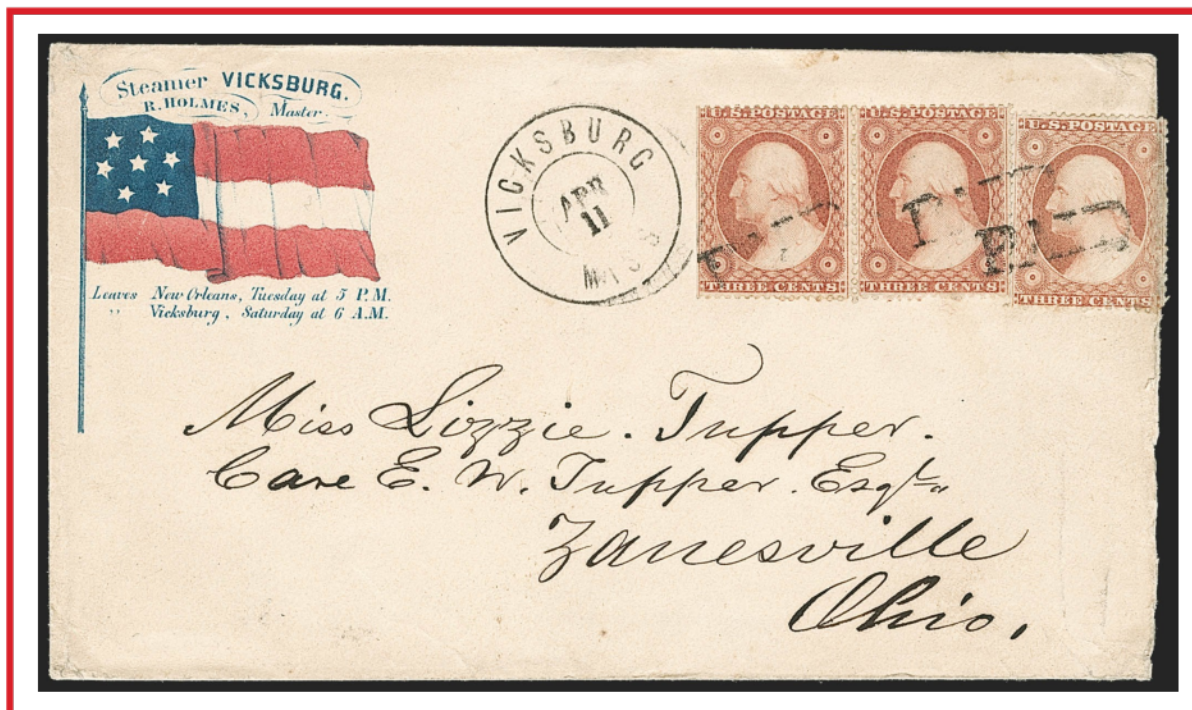 Steamer VICKSBURG.
R. HOLMES, Master.
Leaves New Orleans, Tuesday at 5 P.M.
" Vicksburg, Saturday at 6 A.M.
VICKSBURG
APR
11
MISS
U.S. POSTAGE
THREE CENTS
U.S. POSTAGE
THREE CENTS
U.S. POSTAGE
THREE CENTS
PAID
PAID
PAID
Miss Lizzie. Tupper.
Care E. W. Tupper. Esqr
Zanesville
Ohio.